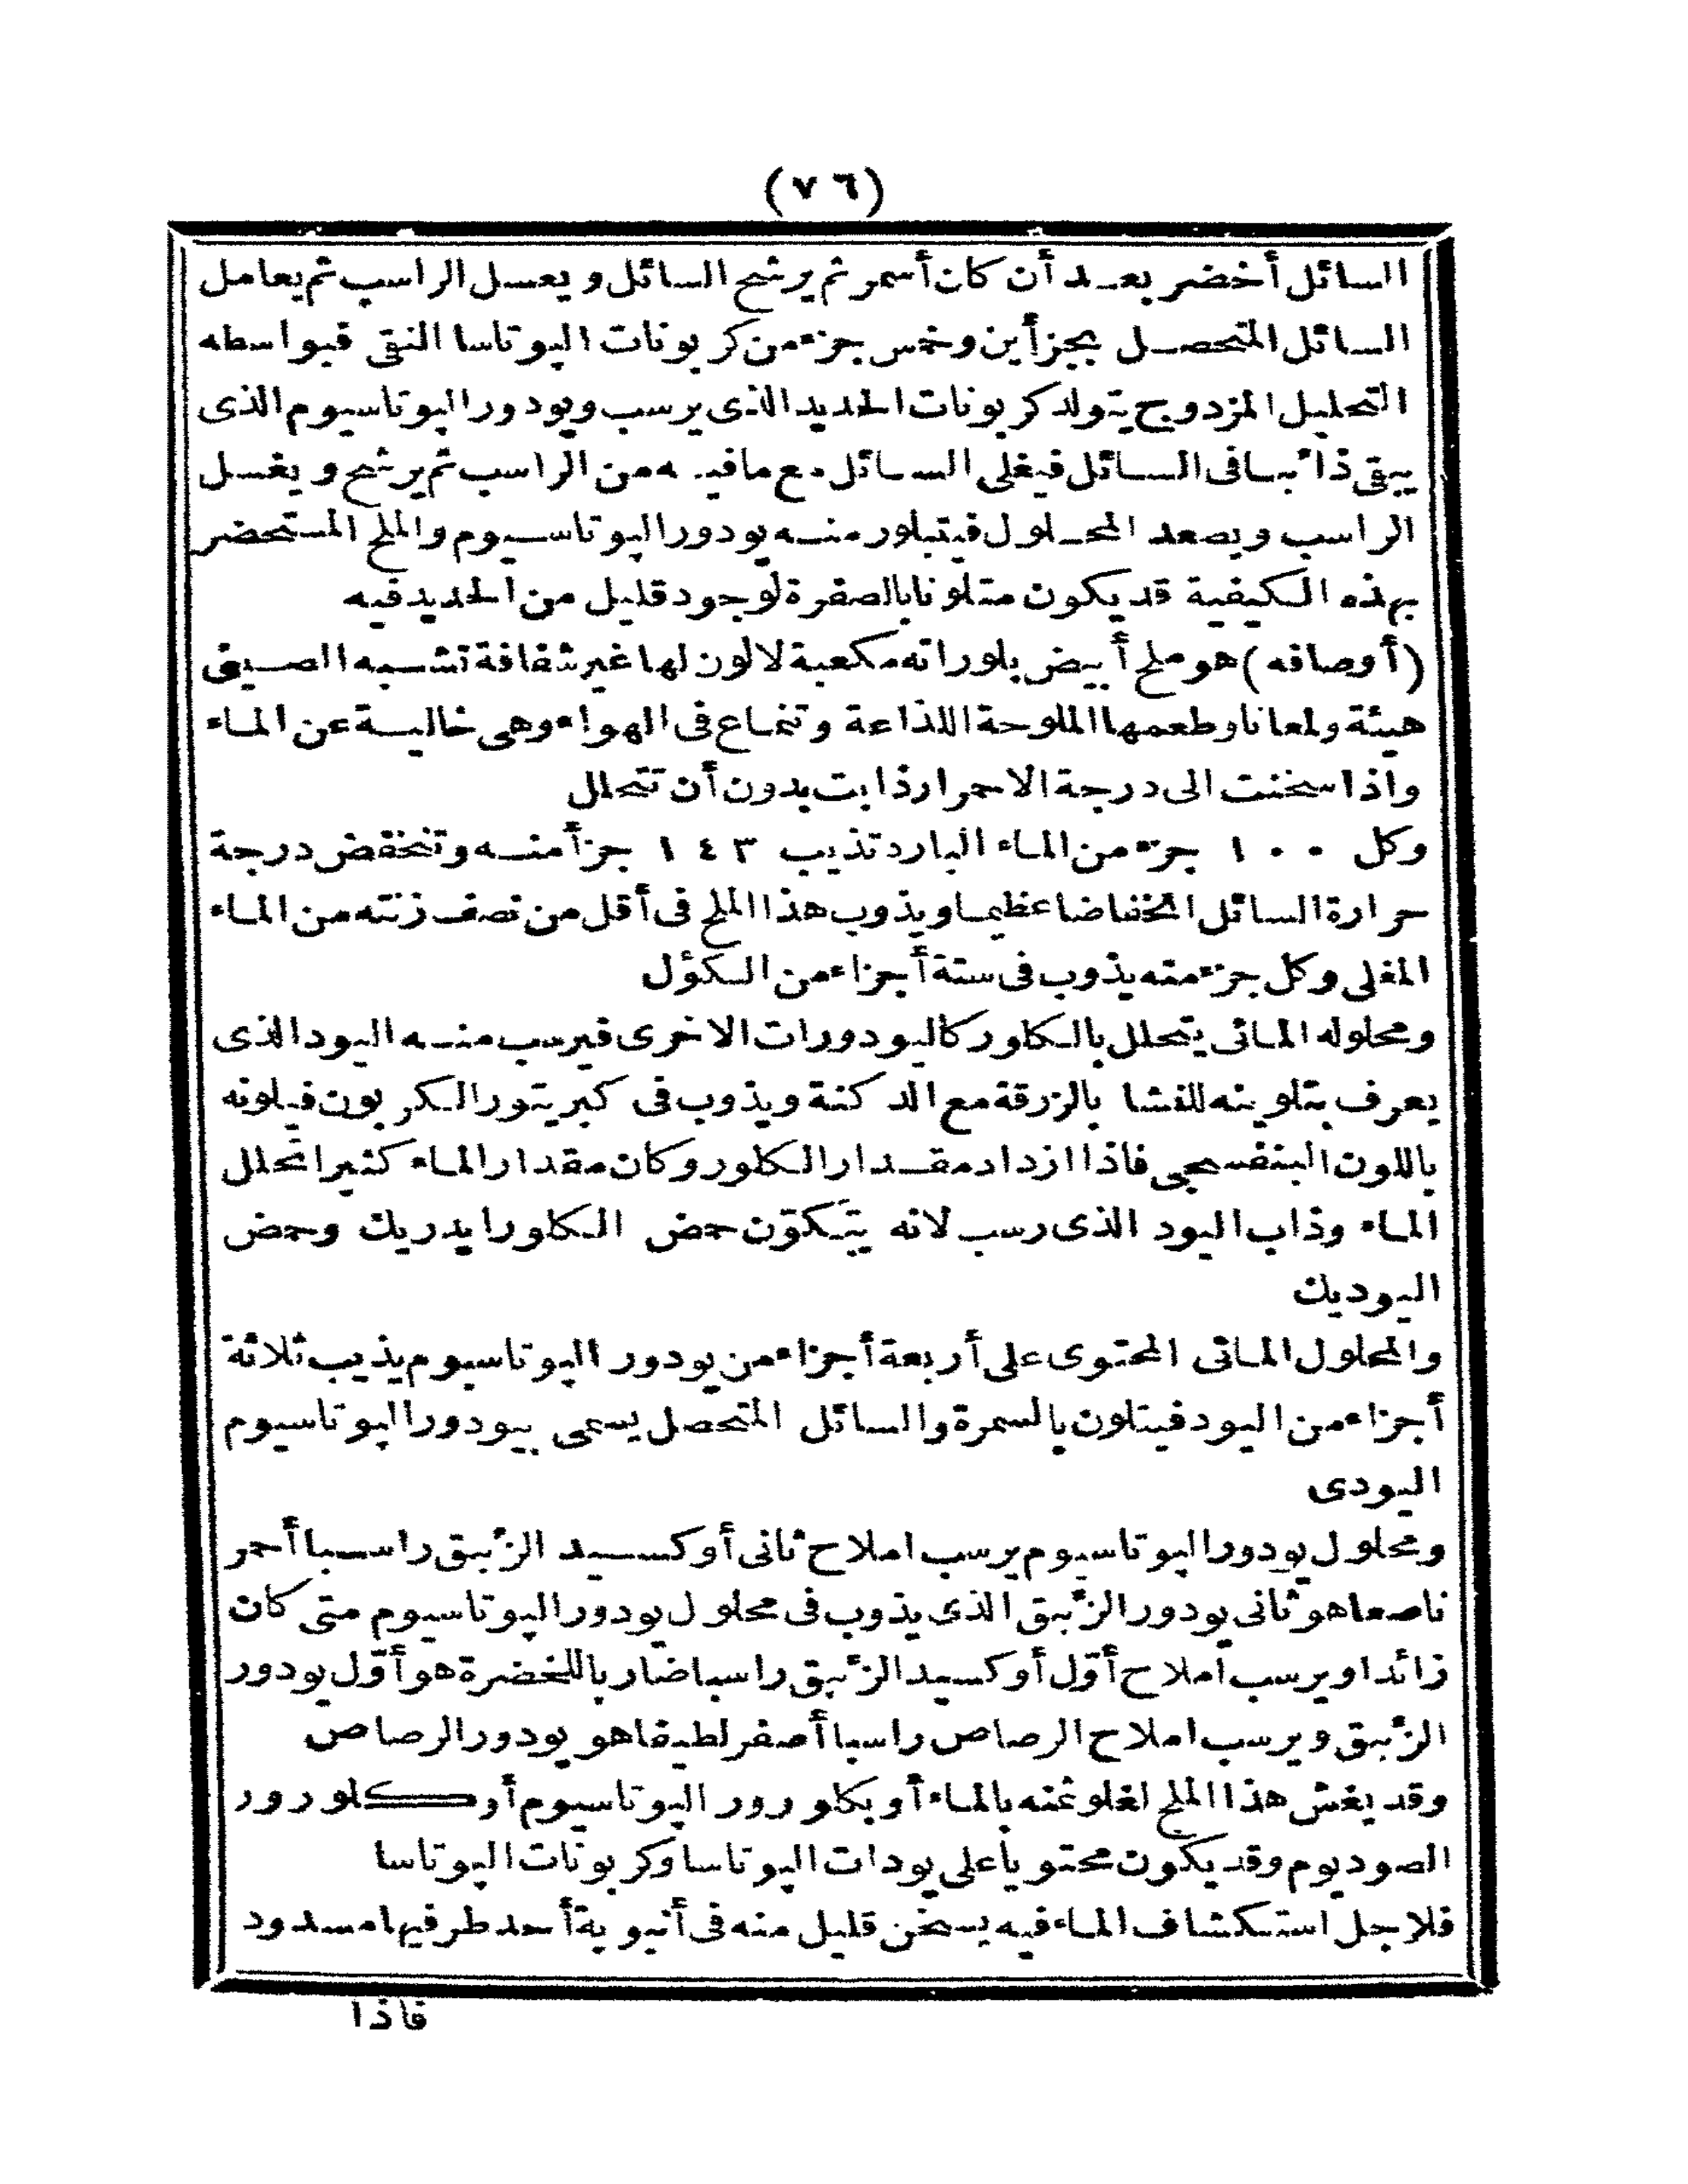 (٧٦)
السائل أخضر بعد أن كان أسمر ثم يرشح السائل ويعسل الراسب ثم يعامل
السائل المتحصل بجزأين وخمس جزء من كربونات البوتاسا النقى فبواسطه
التحليل المزدوج يتولد كربونات الحديد الذى يرسب ويودور البوتاسيوم الذى
يبقى ذائبا فى السائل فيغلى السائل مع ما فيه من الراسب ثم يرشح ويغسل
الراسب ويصعد المحلول فيتبلور منه يودور البوتاسيوم والملح المستحضر
بهذه الكيفية قد يكون متلونا بالصفرة لوجود قليل من الحديد فيه
(أوصافه) هو ملح أبيض بلوراته مكعبة لا لون لها غير شفافة تشبه الصينى
هيئة ولمعانا وطعمها الملوحة اللذاعة وتنماع فى الهواء وهى خالية عن الماء
واذا سخنت الى درجة الاحمرار ذابت بدون أن تتحلل
وكل ١٠٠ جزء من الماء البارد تذيب ١٤٣ جزأ منه وتنخفض درجة
حرارة السائل انخفاضا عظيما ويذوب هذا الملح فى أقل من نصف زنته من الماء
المغلى وكل جزء منه يذوب فى ستة أجزاء من الكؤل
ومحلوله المائى يتحلل بالكلور كاليودورات الاخرى فيرسب منه اليود الذى
يعرف بتلوينه للنشا بالزرقة مع الدكنة ويذوب فى كبريتور الكربون فيلونه
باللون البنفسجى فاذا ازداد مقدار الكلور وكان مقدار الماء كثيرا تحلل
الماء وذاب اليود الذى رسب لانه يتكوّن حمض الكلورايدريك وحمض
اليوديك
والمحلول المائى المحتوى على أربعة أجزاء من يودور البوتاسيوم يذيب ثلاثة
أجزاء من اليود فيتلون بالسمرة والسائل المتحصل يسمى بيودور البوتاسيوم
اليودى
ومحلول يودور البوتاسيوم يرسب املاح ثانى أوكسيد الزئبق راسبا أحمر
ناصعا هو ثانى يودور الزئبق الذى يذوب فى محلول يودور البوتاسيوم متى كان
زائدا ويرسب املاح أوّل أوكسيد الزئبق راسبا ضاربا للخضرة هو أوّل يودور
الزئبق ويرسب املاح الرصاص راسبا أصفر لطيفا هو يودور الرصاص
وقد يغش هذا الملح لغلو ثمنه بالماء أو بكلورور البوتاسيوم أو كلورور
الصوديوم وقد يكون محتويا على يودات البوتاسا وكربونات البوتاسا
فلاجل استكشاف الماء فيه يسخن قليل منه فى أنبوبة أحد طرفيها مسدود
فاذا